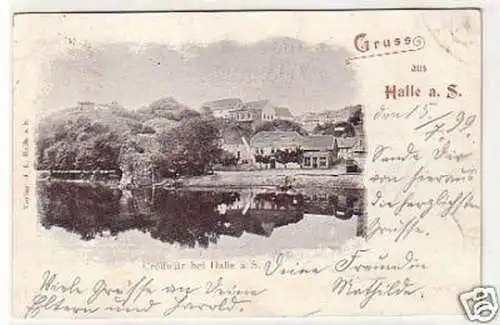 Gruss
aus
Halle a. S.
den 5. 7. 99
Sende Dir
von hieraus
die herzlichsten
Grüsse.
Cröllwitz bei Halle a. S.
Deine Freundin
Mathilde.
Viele Grüsse an Deine
Eltern und Harold.
Verlag